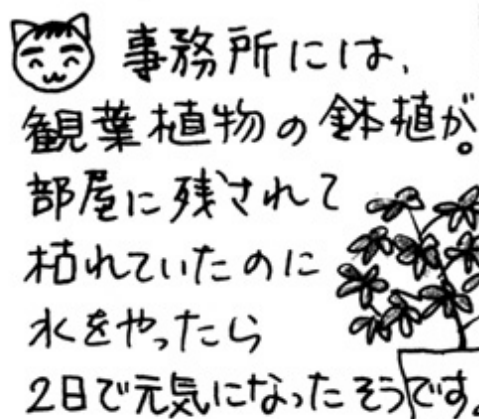 事務所には、
観葉植物の鉢植が。
部屋に残されて
枯れていたのに
水をやったら
2日で元気になったそうです。